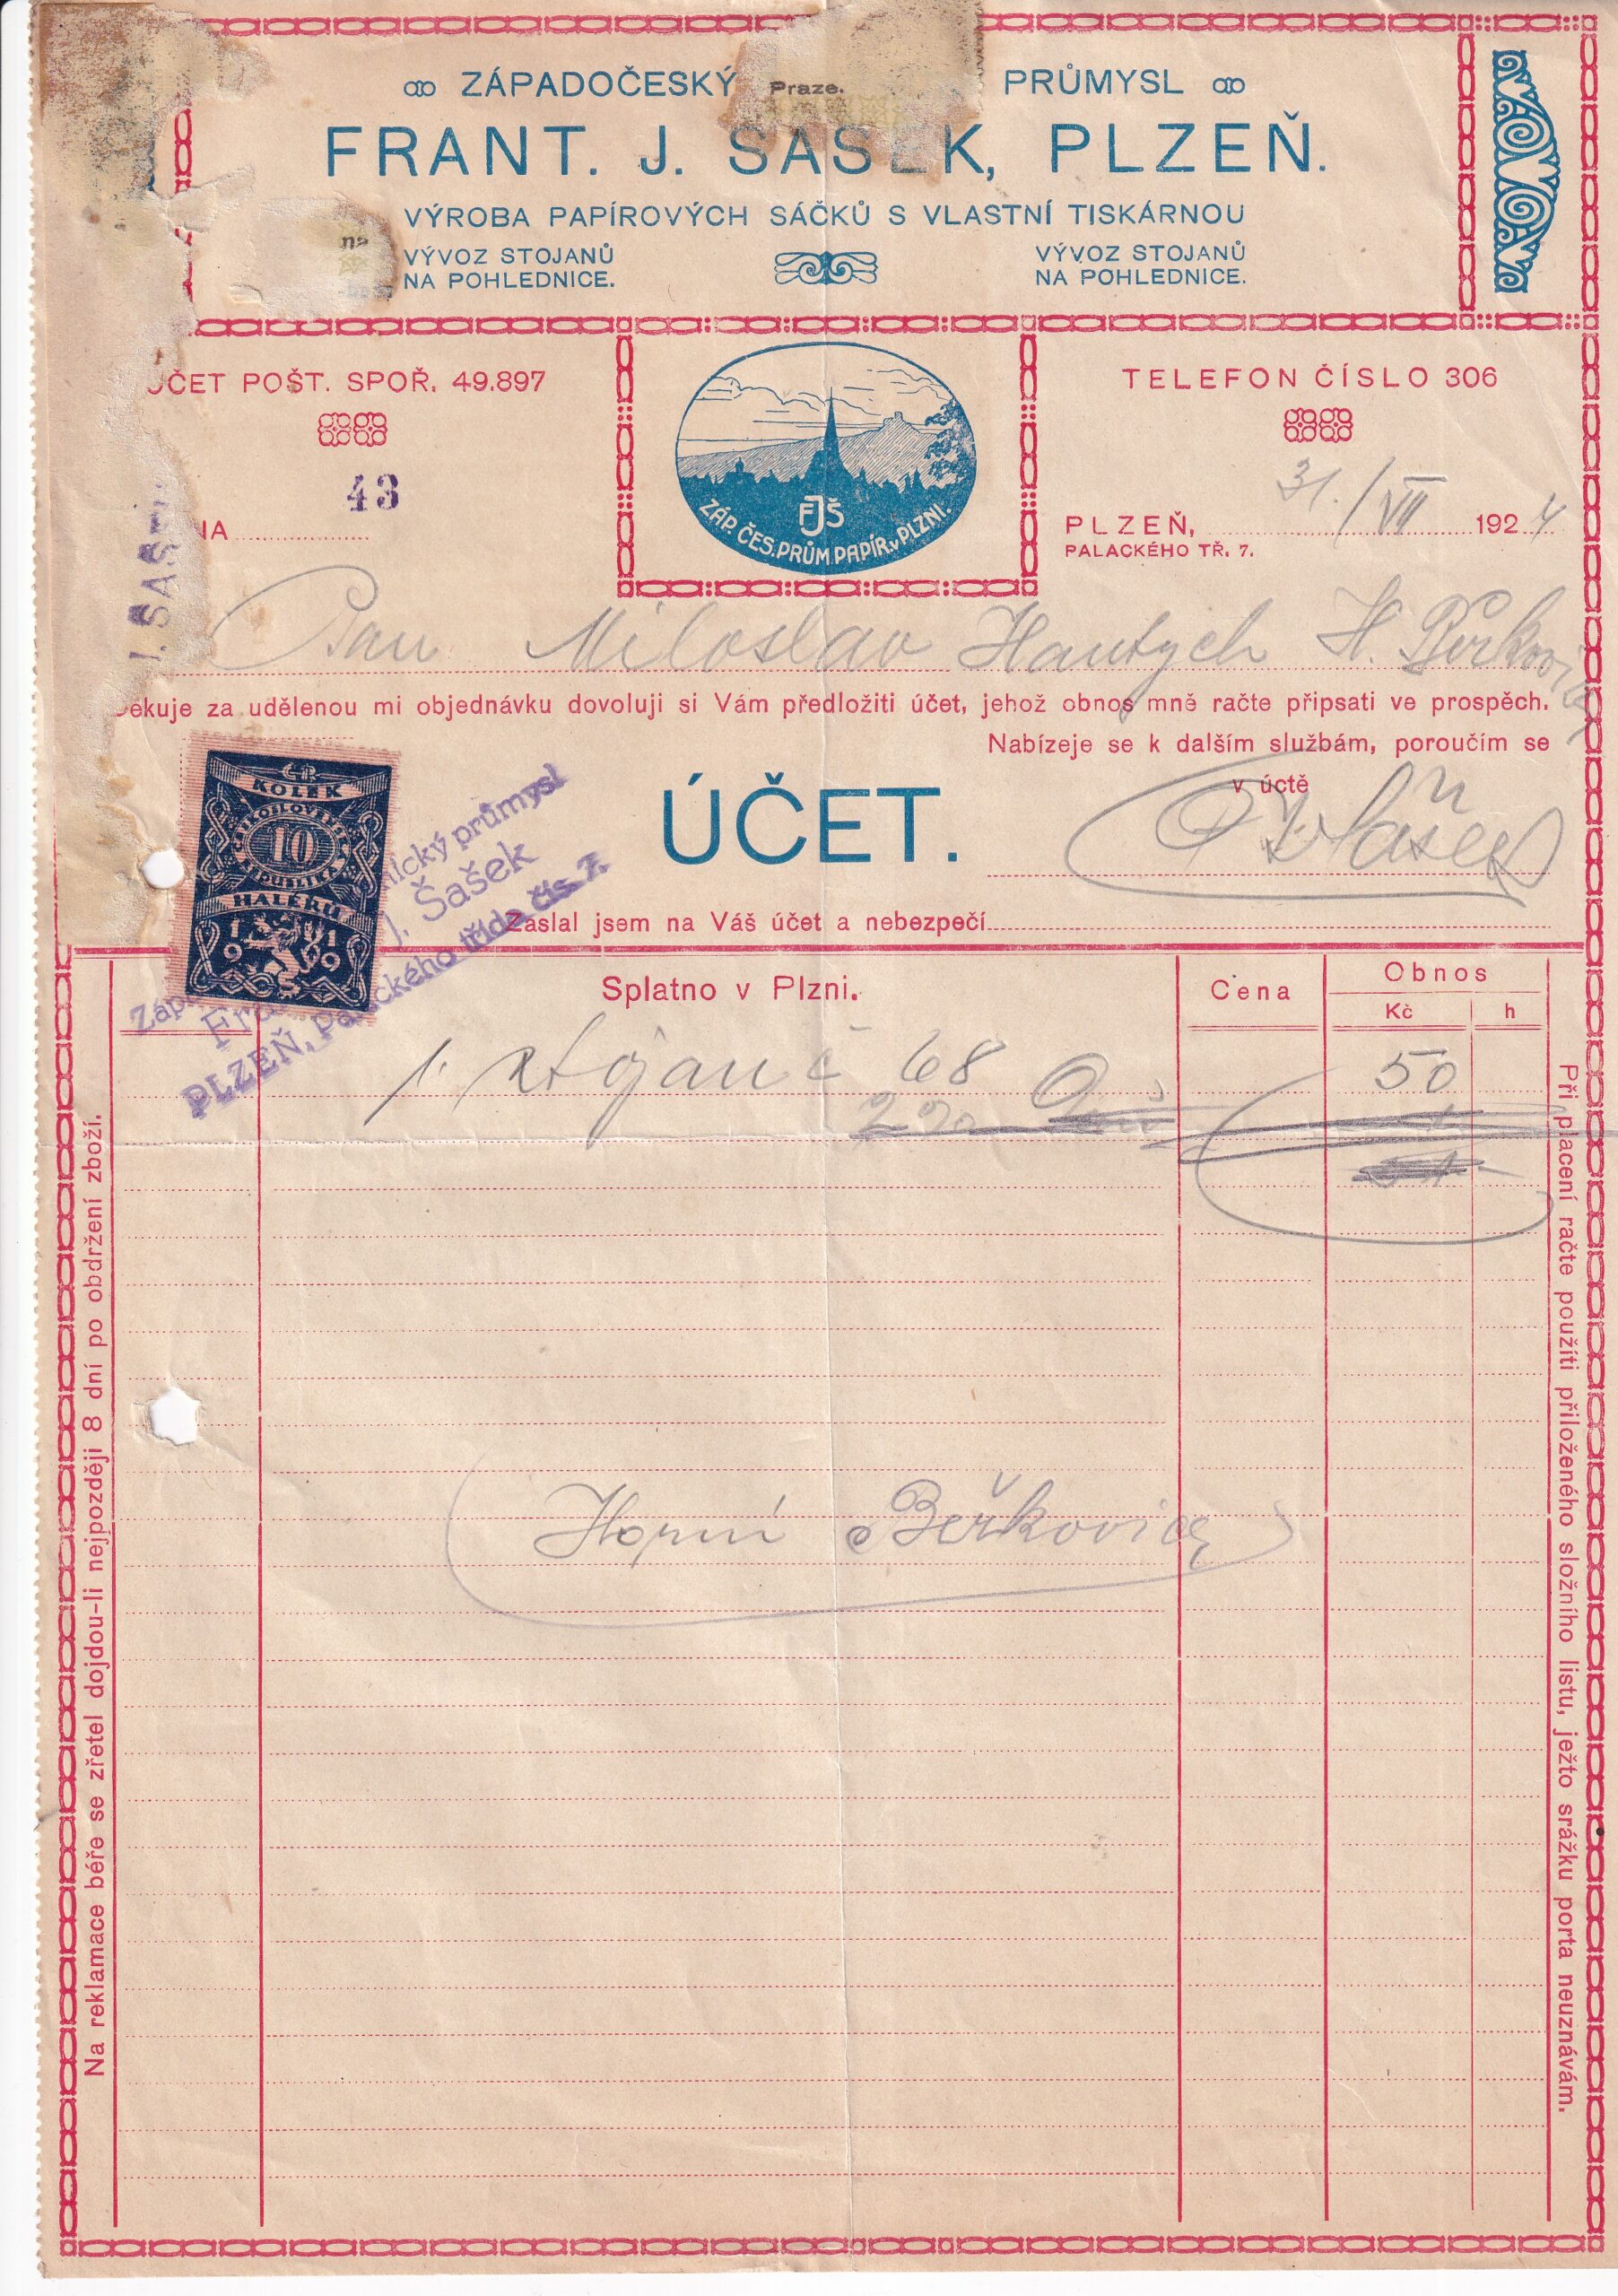 ZÁPADOČESKÝ
Praze.
PRŮMYSL
FRANT. J. ŠAŠEK, PLZEŇ.
VÝROBA PAPÍROVÝCH SÁČKŮ S VLASTNÍ TISKÁRNOU
na
VÝVOZ STOJANŮ
NA POHLEDNICE.
VÝVOZ STOJANŮ
NA POHLEDNICE.
ÚČET POŠT. SPOŘ. 49.897
TELEFON ČÍSLO 306
43
NA
FJŠ
ZÁP. ČES. PRŮM. PAPÍR. v PLZNI.
31./VII 1924
PLZEŇ,
PALACKÉHO TŘ. 7.
J. ŠAŠEK
Pan Miloslav Hantych H. Beřkovice
Děkuje za udělenou mi objednávku dovoluji si Vám předložiti účet, jehož obnos mně račte připsati ve prospěch.
Nabízeje se k dalším službám, poroučím se
v úctě
KOLEK
ČESKOSLOVENSKÁ
10
REPUBLIKA
HALÉŘŮ
1919
ÚČET.
Šašek
nický průmysl
J. Šašek
PLZEŇ, Palackého třída čís. 7.
Zaslal jsem na Váš účet a nebezpečí
Splatno v Plzni.
Cena
Obnos
Kč
h
1. stojan č 68
50
Horní Beřkovice
Na reklamace béře se zřetel dojdou-li nejpozději 8 dní po obdržení zboží.
Při placení račte použíti přiloženého složního listu, ježto srážku porta neuznávám.